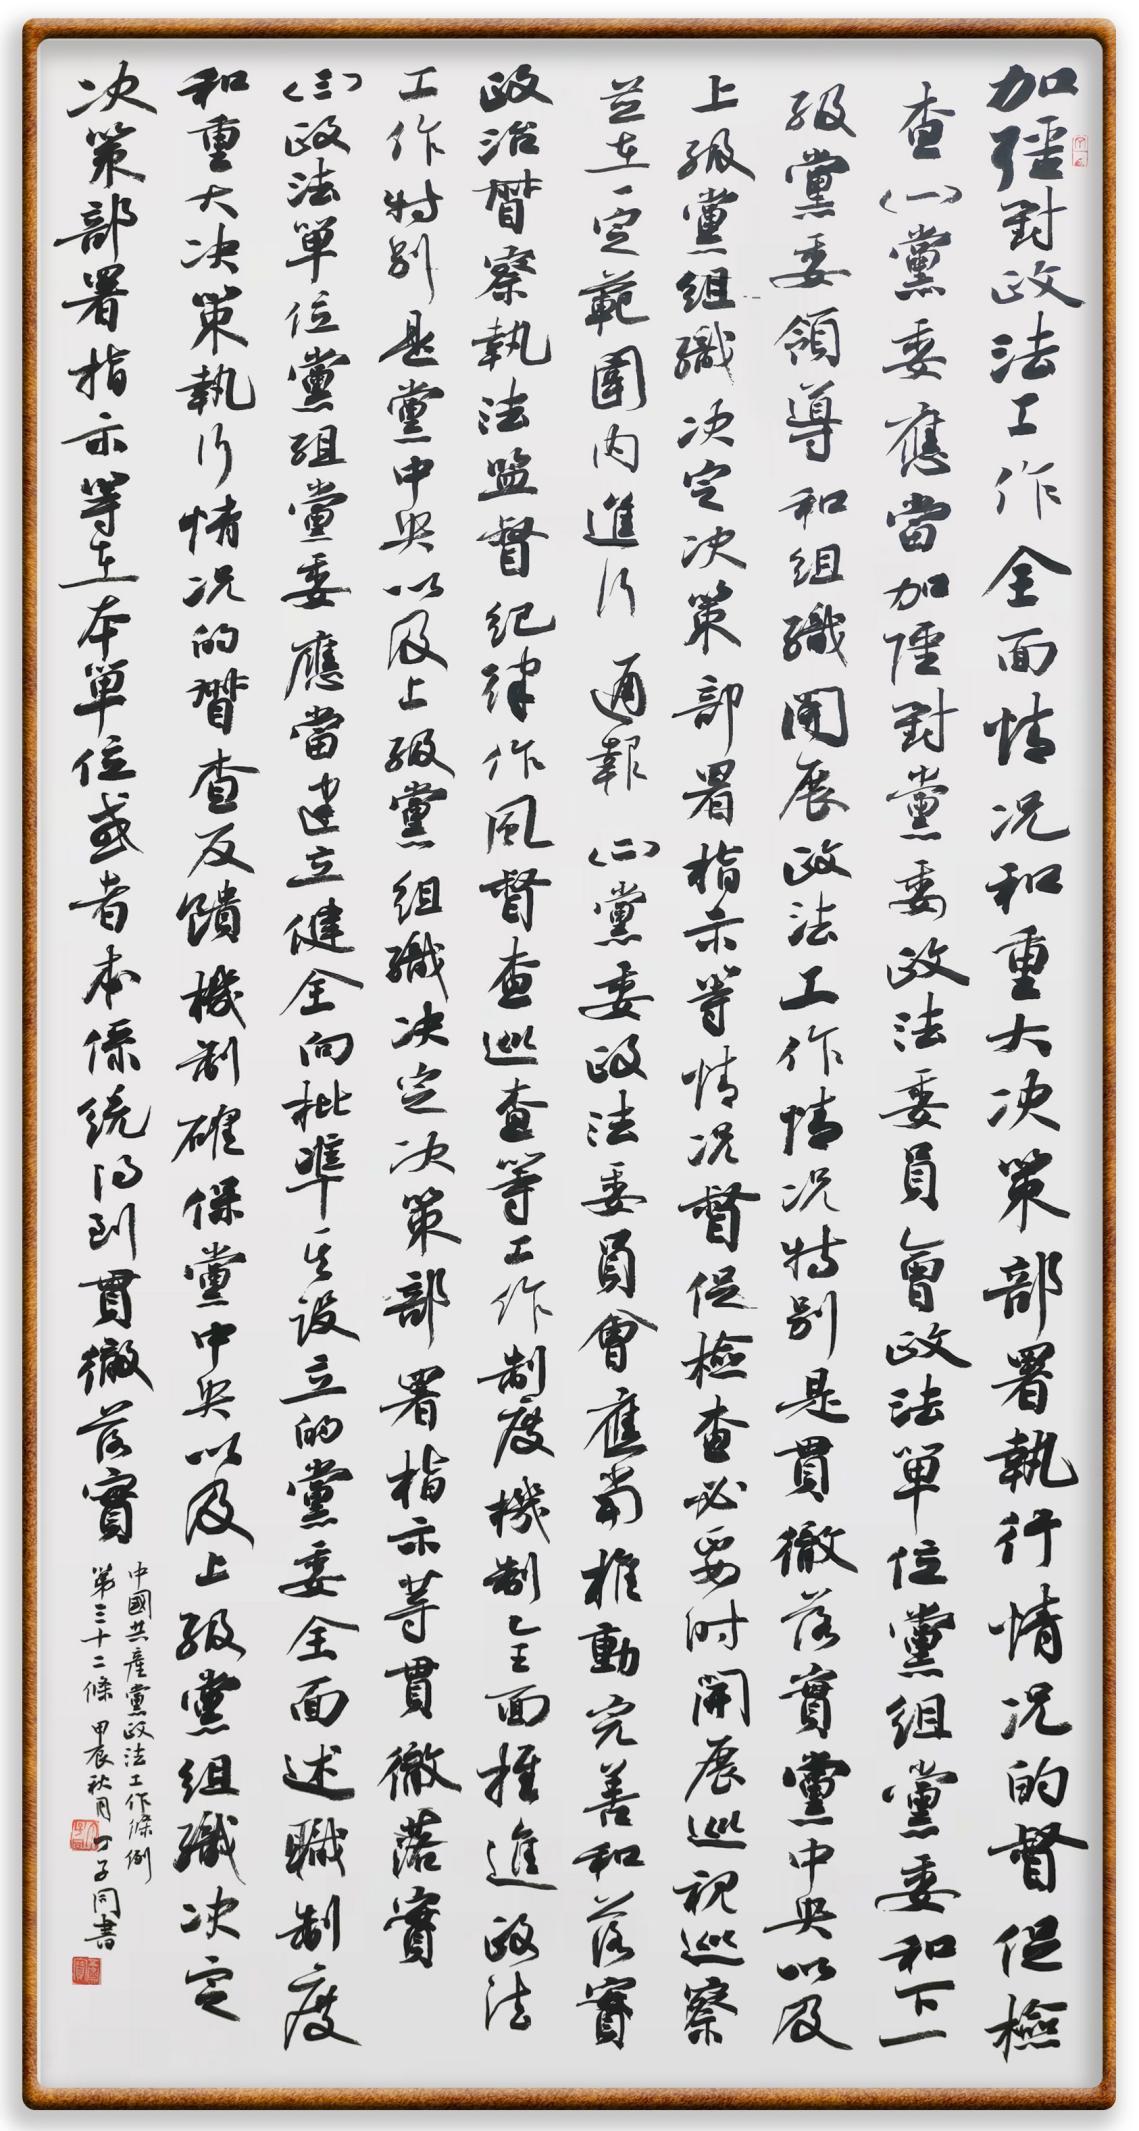 加彊對政法工作全面情况和重大决策部署執行情况的督促檢
查（一）黨委應當加彊對黨委政法委員會政法單位黨組黨委和下一
級黨委領導和組織開展政法工作情况特别是貫徹落實黨中央以及
上級黨組織决定决策部署指示等情况督促檢查必要时開展巡視巡察
並在一定範圍内進行通報（二）黨委政法委員會應當推動完善和落實
政治督察執法監督紀律作風督查巡查等工作制度機制全面推進政法
工作特别是黨中央以及上級黨組織决定决策部署指示等貫徹落實
（三）政法單位黨組黨委應當建立健全向批準其設立的黨委全面述職制度
和重大决策執行情况的督查反饋機制確保黨中央以及上級黨組織决定
决策部署指示等在本單位或者本係統得到貫徹落實
中國共產黨政法工作條例
第三十二條 甲辰秋月 丁子同書